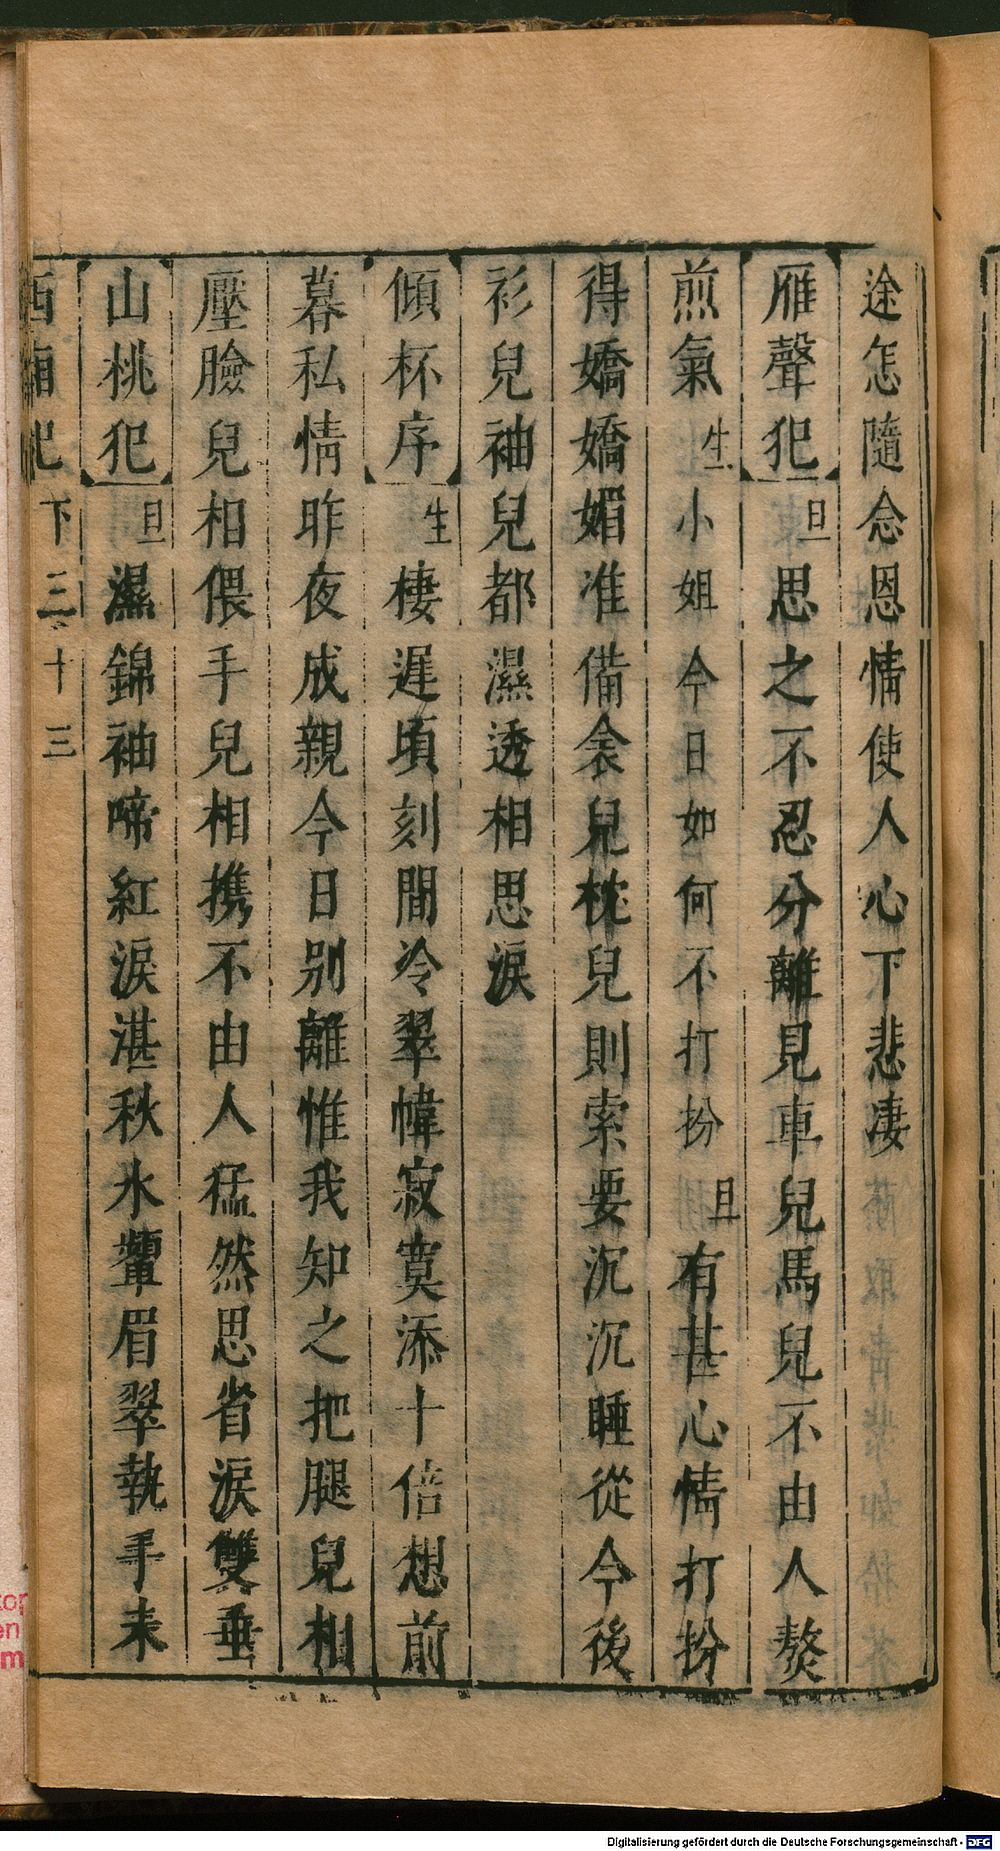 途怎隨念恩情使人心下悲凄
雁聲犯 旦 思之不忍分離見車兒馬兒不由人熬
煎氣 生 小姐今日如何不打扮 旦 有甚心情打扮
得嬌嬌媚准備衾兒枕兒則索要沉沉睡從今後
衫兒袖兒都濕透相思淚
傾杯序 生 棲遲頃刻間冷翠幃寂寞添十倍想前
暮私情昨夜成親今日别離惟我知之把腿兒相
壓臉兒相偎手兒相携不由人猛然思省淚雙垂
山桃犯 旦 濕錦袖啼紅淚湛秋水顰眉翠執手未
西廂記 下 三十三
Digitalisierung gefördert durch die Deutsche Forschungsgemeinschaft - DFG